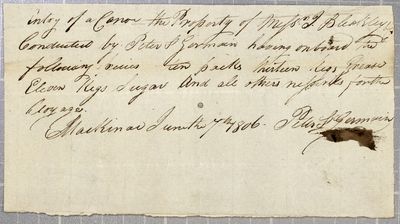 intry of a Canoe the Property of Mess.rs J Bleakley
Conducted by Peter St Germain having onboard the
following vizies ten packs thirteen Kegs Grease
Eleven Kegs Sugar And all others nessents for the
Voyage
Mackinac June the 7th 1806 Peter St Germain